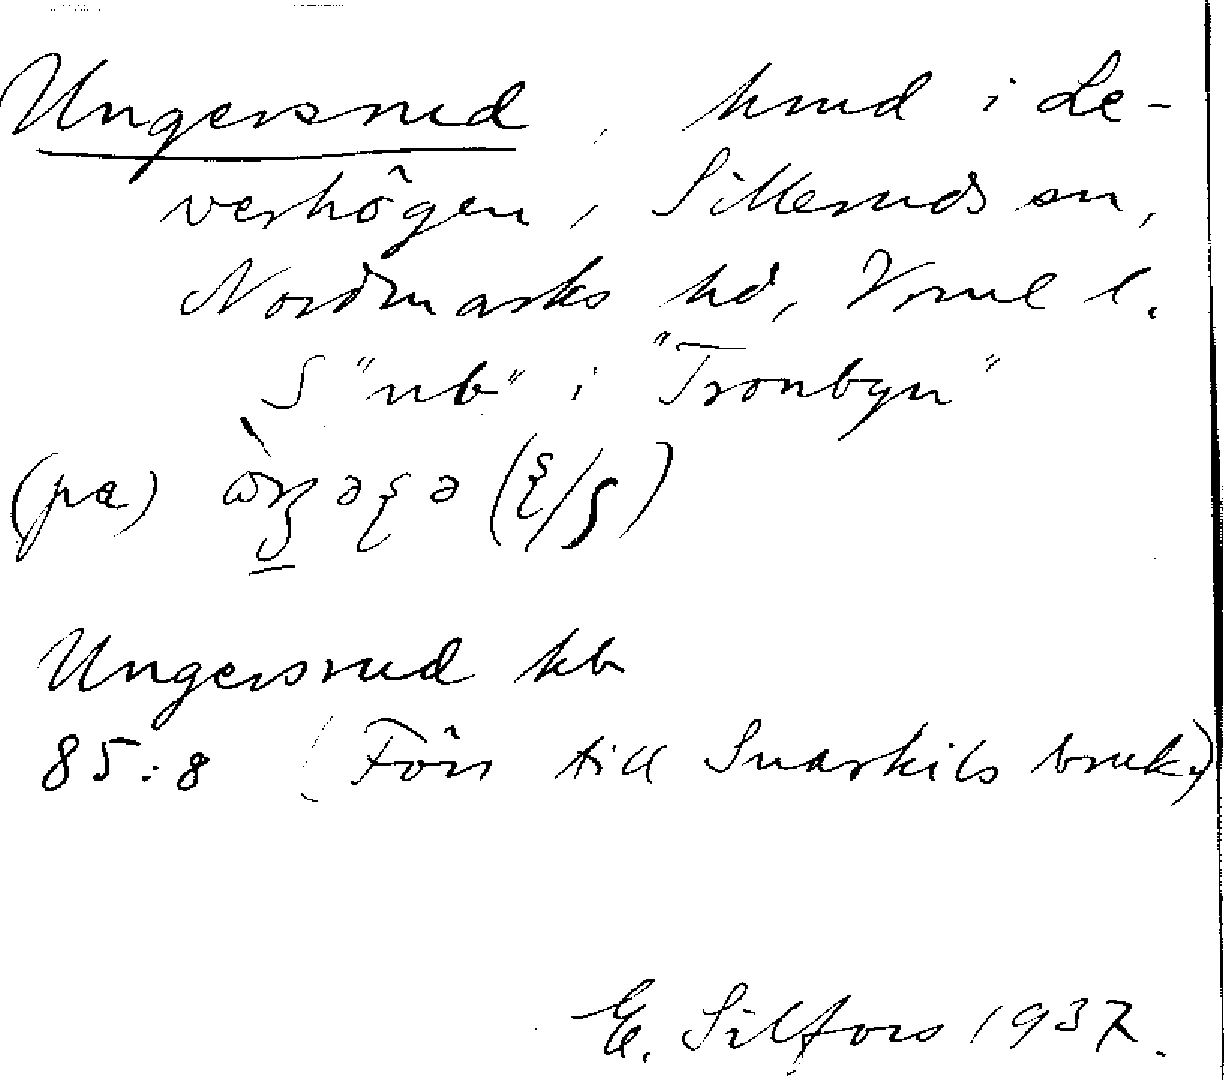 Ungersrud, hmd i Le-
verhögen, Silleruds sn,
Nordmarks hd, Vrml l.
S "nb" i "Tronbyn"
(på)
Ungersrud kb
85:8 (Förs till Snarkils bruk.)
E. Silfors 1937.